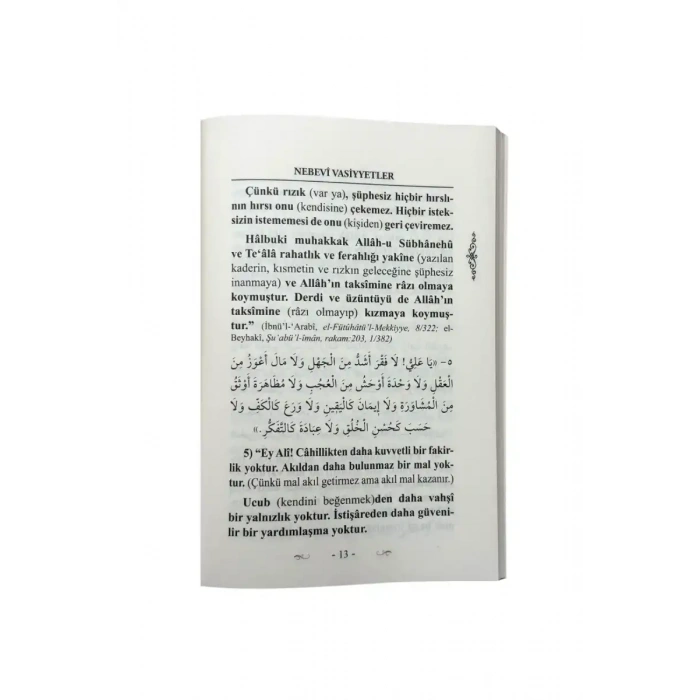 NEBEVÎ VASİYYETLER
Çünkü rızık (var ya), şüphesiz hiçbir hırslı-
nın hırsı onu (kendisine) çekemez. Hiçbir istek-
sizin istememesi de onu (kişiden) geri çeviremez.
Hâlbuki muhakkak Allâh-u Sübhânehû
ve Te‘âlâ rahatlık ve ferahlığı yakîne (yazılan
kaderin, kısmetin ve rızkın geleceğine şüphesiz
inanmaya) ve Allâh'ın taksîmine râzı olmaya
koymuştur. Derdi ve üzüntüyü de Allâh'ın
taksîmine (râzı olmayıp) kızmaya koymuş-
tur.” (İbnü'l-‘Arabî, el-Fütûhâtü'l-Mekkiyye, 8/322; el-
Beyhakî, Şu‘abü'l-îmân, rakam:203, 1/382)
٥- «يَا عَلِيُّ! لَا فَقْرَ أَشَدُّ مِنَ الْجَهْلِ وَلَا مَالَ أَعْوَزُ مِنَ
الْعَقْلِ وَلَا وَحْدَةَ أَوْحَشُ مِنَ الْعُجْبِ وَلَا مُظَاهَرَةَ أَوْثَقُ
مِنَ الْمُشَاوَرَةِ وَلَا إِيمَانَ كَالْيَقِينِ وَلَا وَرَعَ كَالْكَفِّ وَلَا
حَسَبَ كَحُسْنِ الْخُلُقِ وَلَا عِبَادَةَ كَالتَّفَكُّرِ.»
5) “Ey Alî! Câhillikten daha kuvvetli bir fakir-
lik yoktur. Akıldan daha bulunmaz bir mal yok-
tur. (Çünkü mal akıl getirmez ama akıl mal kazanır.)
Ucub (kendini beğenmek)den daha vahşî
bir yalnızlık yoktur. İstişâreden daha güveni-
lir bir yardımlaşma yoktur.
- 13 -